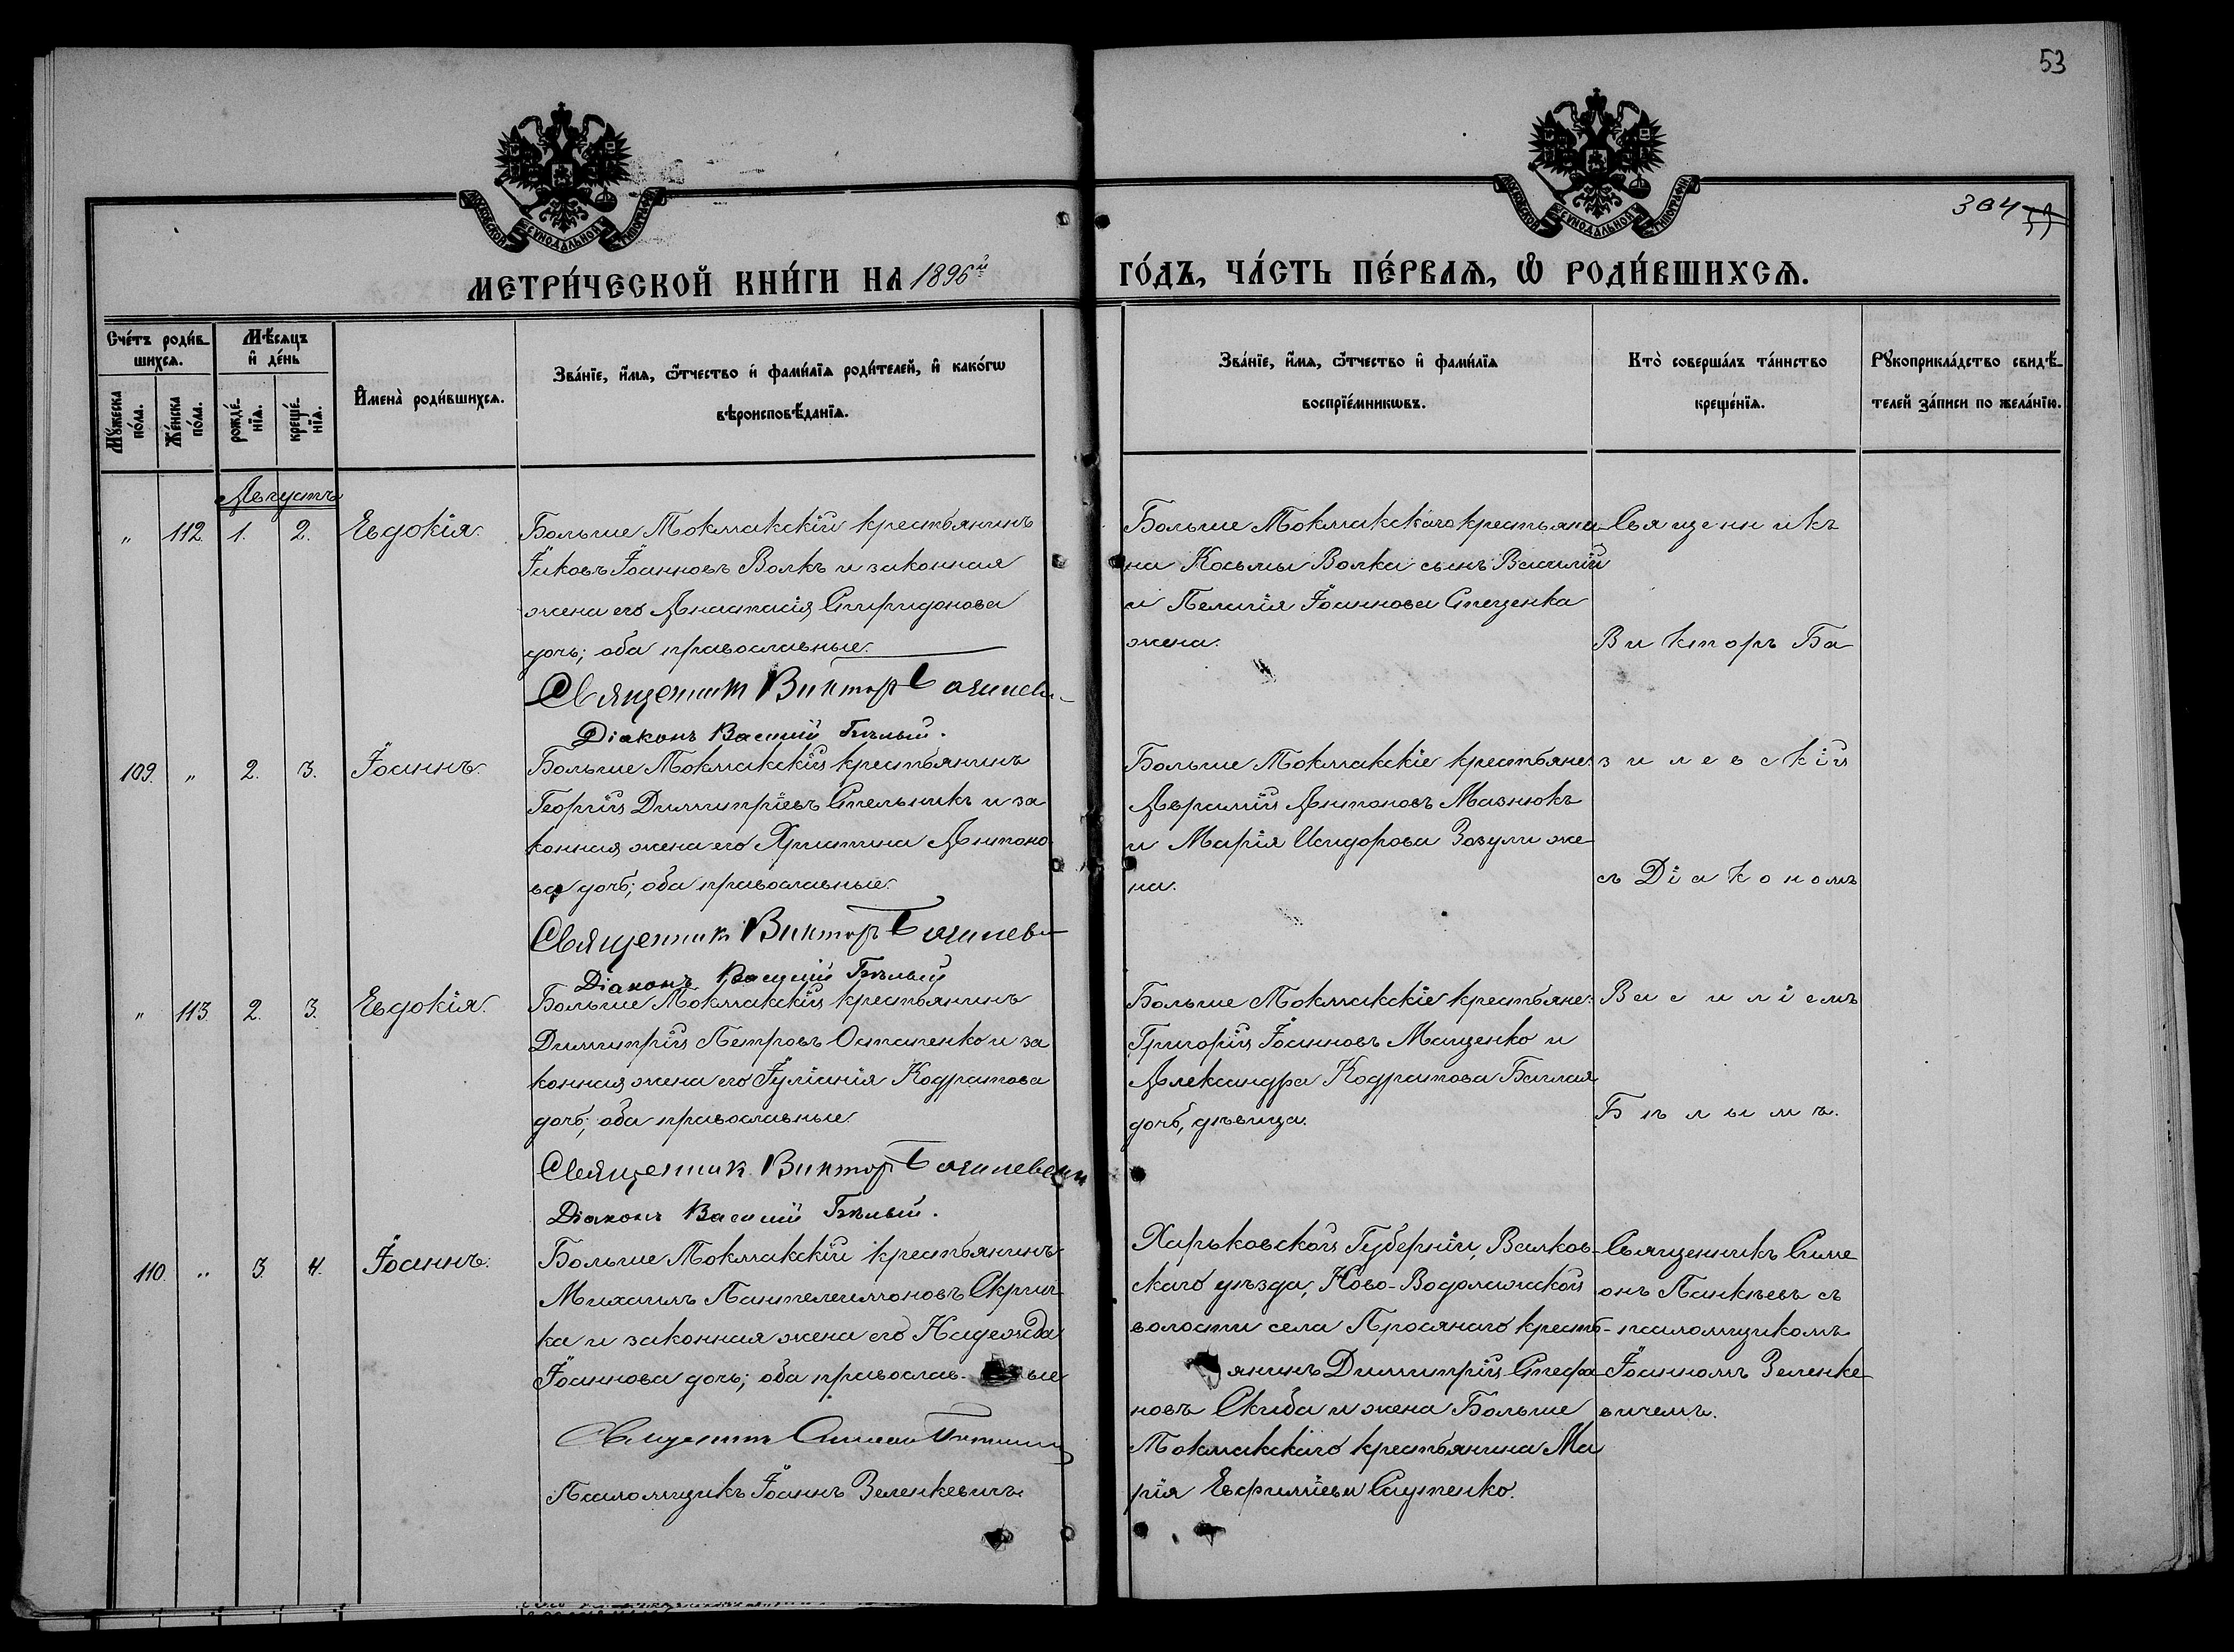 53
304
МОСКОВСКОЙ СѴНОДАЛЬНОЙ ТИПОГРАФІИ
МОСКОВСКОЙ СѴНОДАЛЬНОЙ ТИПОГРАФІИ
МЕТРИ́ЧЕСКОЙ КНИ́ГИ НА 1896й ГО́ДЪ, ЧА́СТЬ ПЕ́РВАѦ, Ѡ҆ РОДИ́ВШИХСѦ.
Сче́тъ роди́в-
шихсѧ.
Мꙋ́жеска
по́ла.
Же́нска
по́ла.
Мѣ́сѧцъ
и҆ де́нь
рожде́-
нїѧ.
креще́-
нїѧ.
И҆мена̀ роди́вшихсѧ.
Зва́нїе, и҆́мѧ, ѻ҆́тчество и҆ фами́лїѧ роди́телей, и҆ како́гѡ
вѣроисповѣ́данїѧ.
Зва́нїе, и҆́мѧ, ѻ҆́тчество и҆ фами́лїѧ
воспрїе́мникѡвъ.
Кто̀ соверша́лъ та́инство
креще́нїѧ.
Рꙋкоприкла́дство свидѣ́-
телей за́писи по жела́нїю.
Августъ
" 112. 1. 2. Евдокія.
Больше Токмакскій крестьянинъ
Іаковъ Іоанновъ Волкъ и законная
жена его Анастасія Спиридонова
дочь; оба православные.
Священник Виктор Базилевс
Діаконъ Василій Бѣлый.
Больше Токмакскаго крестьяни-
на Косьмы Волка сынъ Василій
и Пелагія Іоаннова Стеценка
жена.
Священникъ
Викторъ Ба
109. " 2. 3. Іоаннъ.
Больше Токмакскій крестьянинъ
Георгій Димитріевъ Стельникъ и за
конная жена его Христина Антоно
ва дочь; оба православные.
Священник Виктор Базилев
Діаконъ Василій Бѣлый
Больше Токмакскіе крестьяне:
Авраамій Антоновъ Мазнюкъ
и Марія Исидорова Зозули же
на.
зилевскій
съ Діакономъ
" 113. 2. 3. Евдокія.
Больше Токмакскій крестьянинъ
Димитрій Петровъ Остапенко и за
конная жена его Іуліанія Кодратова
дочь; оба православные.
Священник Виктор Базилевский
Діаконъ Василій Бѣлый.
Больше Токмакскіе крестьяне:
Григорій Іоанновъ Мащенко и
Александра Кодратова Баглая
дочь, дѣвица.
Василіемъ
Бѣлымъ.
110. " 3. 4. Іоаннъ.
Больше Токмакскій крестьянинъ
Михаилъ Пантелеимоновъ Скрип
ка и законная жена его Надежда
Іоаннова дочь; оба православ- ные
Священник Симеон
Псаломщикъ Іоаннъ Зеленкевичъ
Харьковской Губерніи, Валков-
скаго уѣзда, Ново-Водолажской
волости села Просянаго кресть-
янинъ Димитрій Стефа
новъ Скиба и жена Больше
Токмакскаго крестьянина Ма
рія Евфиміева Саутенко.
Священникъ Симе
онъ Панкѣевъ съ
псаломщикомъ
Іоанномъ Зеленке
вичемъ.